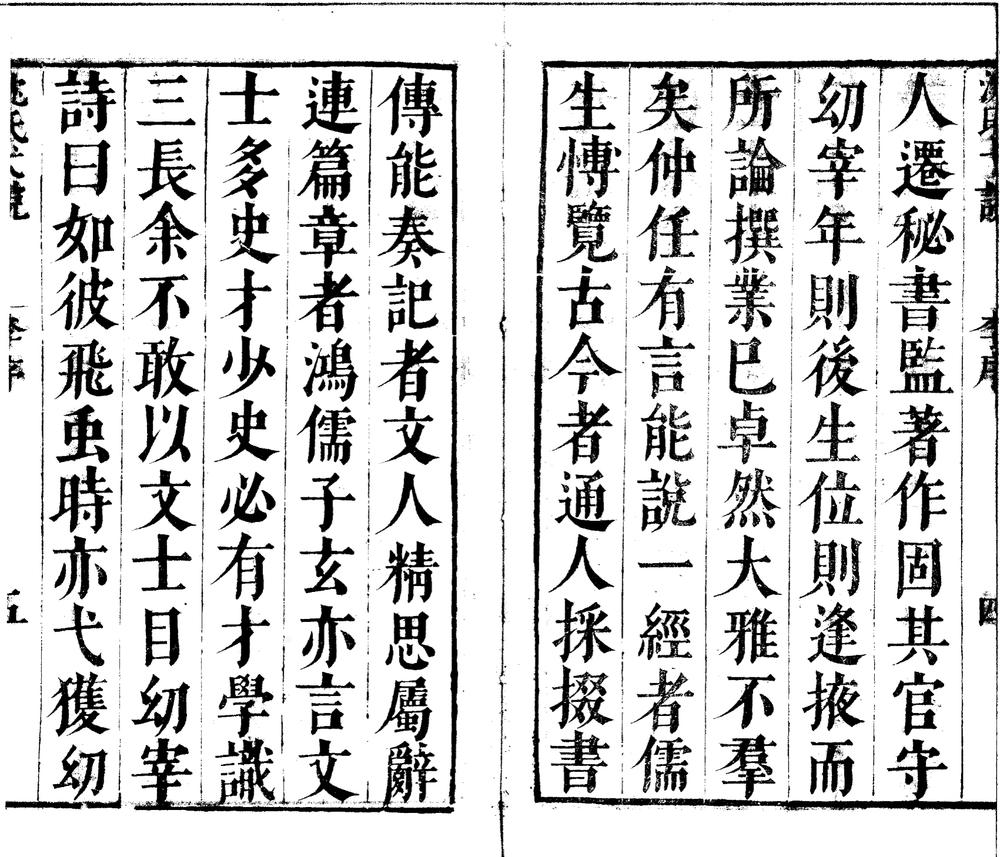 人遷秘書監著作固其官守
幼宰年則後生位則逢掖而
所論撰業巳卓然大雅不羣
矣仲任有言能說一經者儒
生博覽古今者通人採掇書
傳能奏記者文人精思屬辭
連篇章者鴻儒子玄亦言文
士多史才少史必有才學識
三長余不敢以文士目幼宰
詩曰如彼飛虫時亦弋獲幼
五